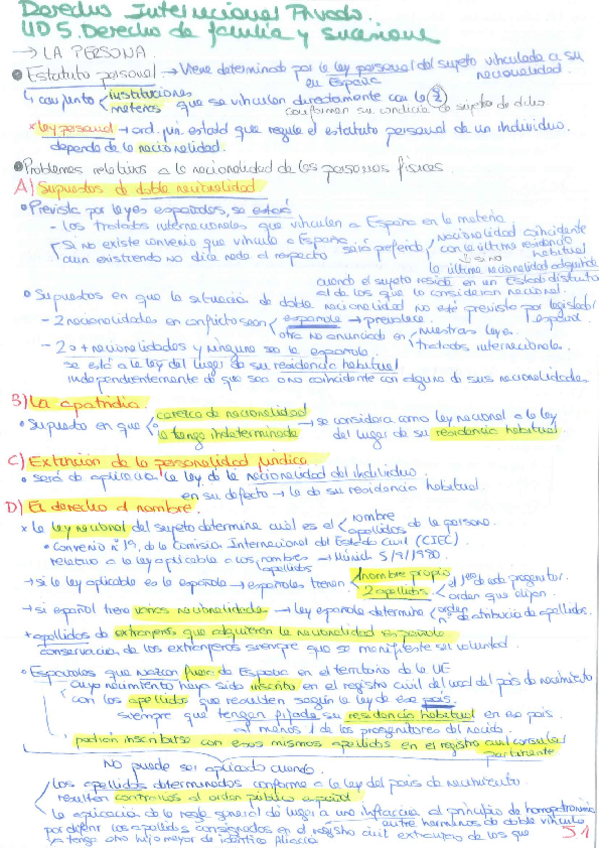 Derecho Internacional Privado.
UD 5. Derecho de familia y sucesiones
→ LA PERSONA.
• Estatuto personal → Viene determinado por la ley personal del sujeto vinculada a su
en España nacionalidad.
↳ conjunto instituciones
materias que se vinculan directamente con la
conforman su condición la sujeto de dcho
* Ley personal → ord. jur. estatal que regula el estatuto personal de un individuo.
depende de la nacionalidad.
• Problemas relativos a la nacionalidad de las personas físicas.
A) Supuestos de doble nacionalidad
• Prevista por leyes españolas, se estará
- los tratados internacionales que vinculan a España en la materia.
Si no existe convenio que vincule a España
aun existiendo no dice nada al respecto
será preferida nacionalidad coincidente
con la última residencia
habitual
↓ si no
la última nacionalidad adquirida
cuando el sujeto resida en un Estado distinto
al de los que lo consideran nacional.
• Supuestos en que la situación de doble nacionalidad no esté prevista por legislación
española.
- 2 nacionalidades en conflicto sean española → prevalece.
otra no enunciada en nuestras leyes.
tratados internacionales.
- 2 o + nacionalidades y ninguna sea la española
se está a la ley del lugar de su residencia habitual
independientemente de que sea o no coincidente con alguna de sus nacionalidades
B) La apatridia.
• Supuesto en que carezca de nacionalidad
la tenga indeterminada
→ se considera como ley nacional a la ley
del lugar de su residencia habitual.
C) Extinción de la personalidad jurídica.
• será de aplicación la ley de la nacionalidad del individuo
en su defecto → la de su residencia habitual.
D) El derecho al nombre.
* la ley nacional del sujeto determina cuál es el nombre
apellidos de la persona.
• Convenio nº 19, de la Comisión Internacional del Estado Civil (CIEC)
relativo a la ley aplicable a los nombres
apellidos → Múnich 5/9/1980.
→ si la ley aplicable es la española → españoles tienen nombre propio
2 apellidos el 1º de cada progenitor.
orden que elijan.
→ si español tiene varias nacionalidades → ley española determina orden
nº de atribución de apellidos.
+ apellidos de extranjeros que adquieren la nacionalidad española
conservación de los extranjeros siempre que se manifieste ser voluntad.
• Españoles que nazcan fuera de España en el territorio de la UE
cuyo nacimiento haya sido inscrito en el registro civil del local del país de nacimiento
con los apellidos que resulten según la ley de ese país.
siempre que tengan fijada su residencia habitual en ese país
al menos 1 de los progenitores del nacido.
podrán inscribirse con esos mismos apellidos en el registro civil consular
pertinente
NO puede ser aplicado cuando.
los apellidos determinados conforme a la ley del país de nacimiento
resulten contrarios al orden público español
la aplicación de la regla general da lugar a una infracción al principio de homopatronimia
entre hermanos de doble vínculo
por diferir los apellidos consignados en el registro civil extranjero de los que
ya tenga otro hijo mayor de idéntica filiación
51